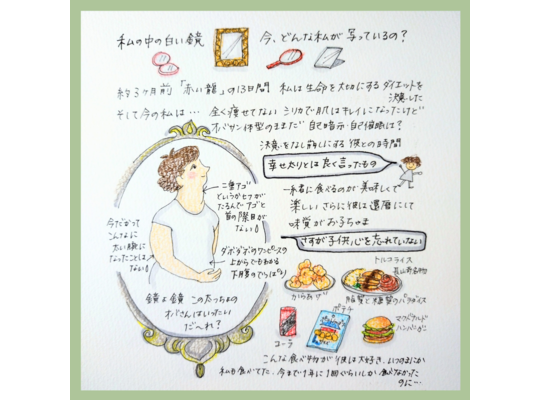 私の中の白い鏡　今、どんな私が写っているの？
約3ヶ月前「赤い龍」の13日間　私は生命を大切にするダイエットを
決意した
そして今の私は…　全く痩せてない　シリカで肌はキレイになったけど
オバサン体型のままだ　自己暗示・自己催眠は？
決意をなし崩しにする彼との時間
幸せ太りとは良く言ったもの
一緒に食べるのが美味しくて
楽しい　さらに彼は還暦にして
味覚がお子ちゃま
さすが子供心を忘れていない
二重アゴ
というかヒフが
たるんでアゴと
首の際目が
ない()
今だかつて
こんなに
太い腕に
なったことは
ない()
ダボダボのワンピースの
上からでもわかる
下腹のでっぱり()
鏡よ鏡　このたっちょの
オバさんはいったい
だ〜れ？
からあげ
トルコライス
長崎名物
脂質と糖質のパラダイス
コーラ
ポテチ
マクドナルド
ハンバーガー
こんな食べ物が彼は大好き、いつのまにか
私も食べてた、今まで1年に1回ぐらいしか食べなかった
のに…